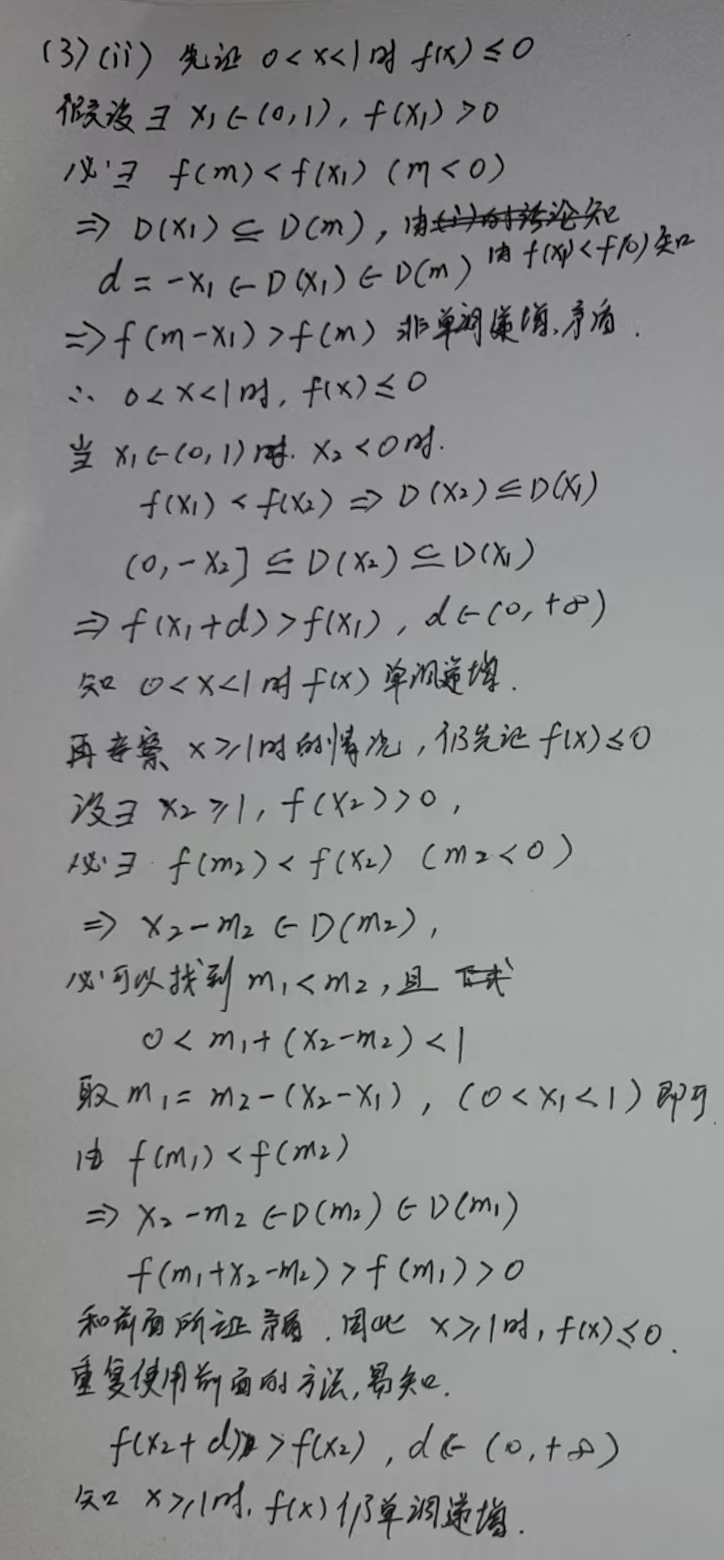 (3)(ii) 先证 0<x<1时 f(x)≤0
假设∃ x₁∈(0,1), f(x₁)>0
必∃ f(m)<f(x₁) (m<0)
⇒ D(x₁)⊆D(m), 由(i)的结论知
d=-x₁∈D(x₁)∈D(m) 由 f(x₁)<f(0)知
⇒f(m-x₁)>f(m) 非单调递增,矛盾.
∴ 0<x<1时, f(x)≤0
当 x₁∈(0,1)时. x₂<0时.
f(x₁)<f(x₂)⇒D(x₂)⊆D(x₁)
(0,-x₂]⊆D(x₂)⊆D(x₁)
⇒f(x₁+d)>f(x₁), d∈(0,+∞)
知 0<x<1时f(x)单调递增.
再考察 x≥1时的情况,仍先证 f(x)≤0
设∃ x₂≥1, f(x₂)>0,
必∃ f(m₂)<f(x₂) (m₂<0)
⇒ x₂-m₂∈D(m₂),
必可以找到m₁<m₂,且
0<m₁+(x₂-m₂)<1
取m₁=m₂-(x₂-x₁), (0<x₁<1)即可.
由 f(m₁)<f(m₂)
⇒x₂-m₂∈D(m₂)∈D(m₁)
f(m₁+x₂-m₂)>f(m₁)>0
和前面所证矛盾.因此 x≥1时,f(x)≤0.
重复使用前面的方法,易知.
f(x₂+d)>f(x₂), d∈(0,+∞)
知 x≥1时, f(x)仍单调递增.